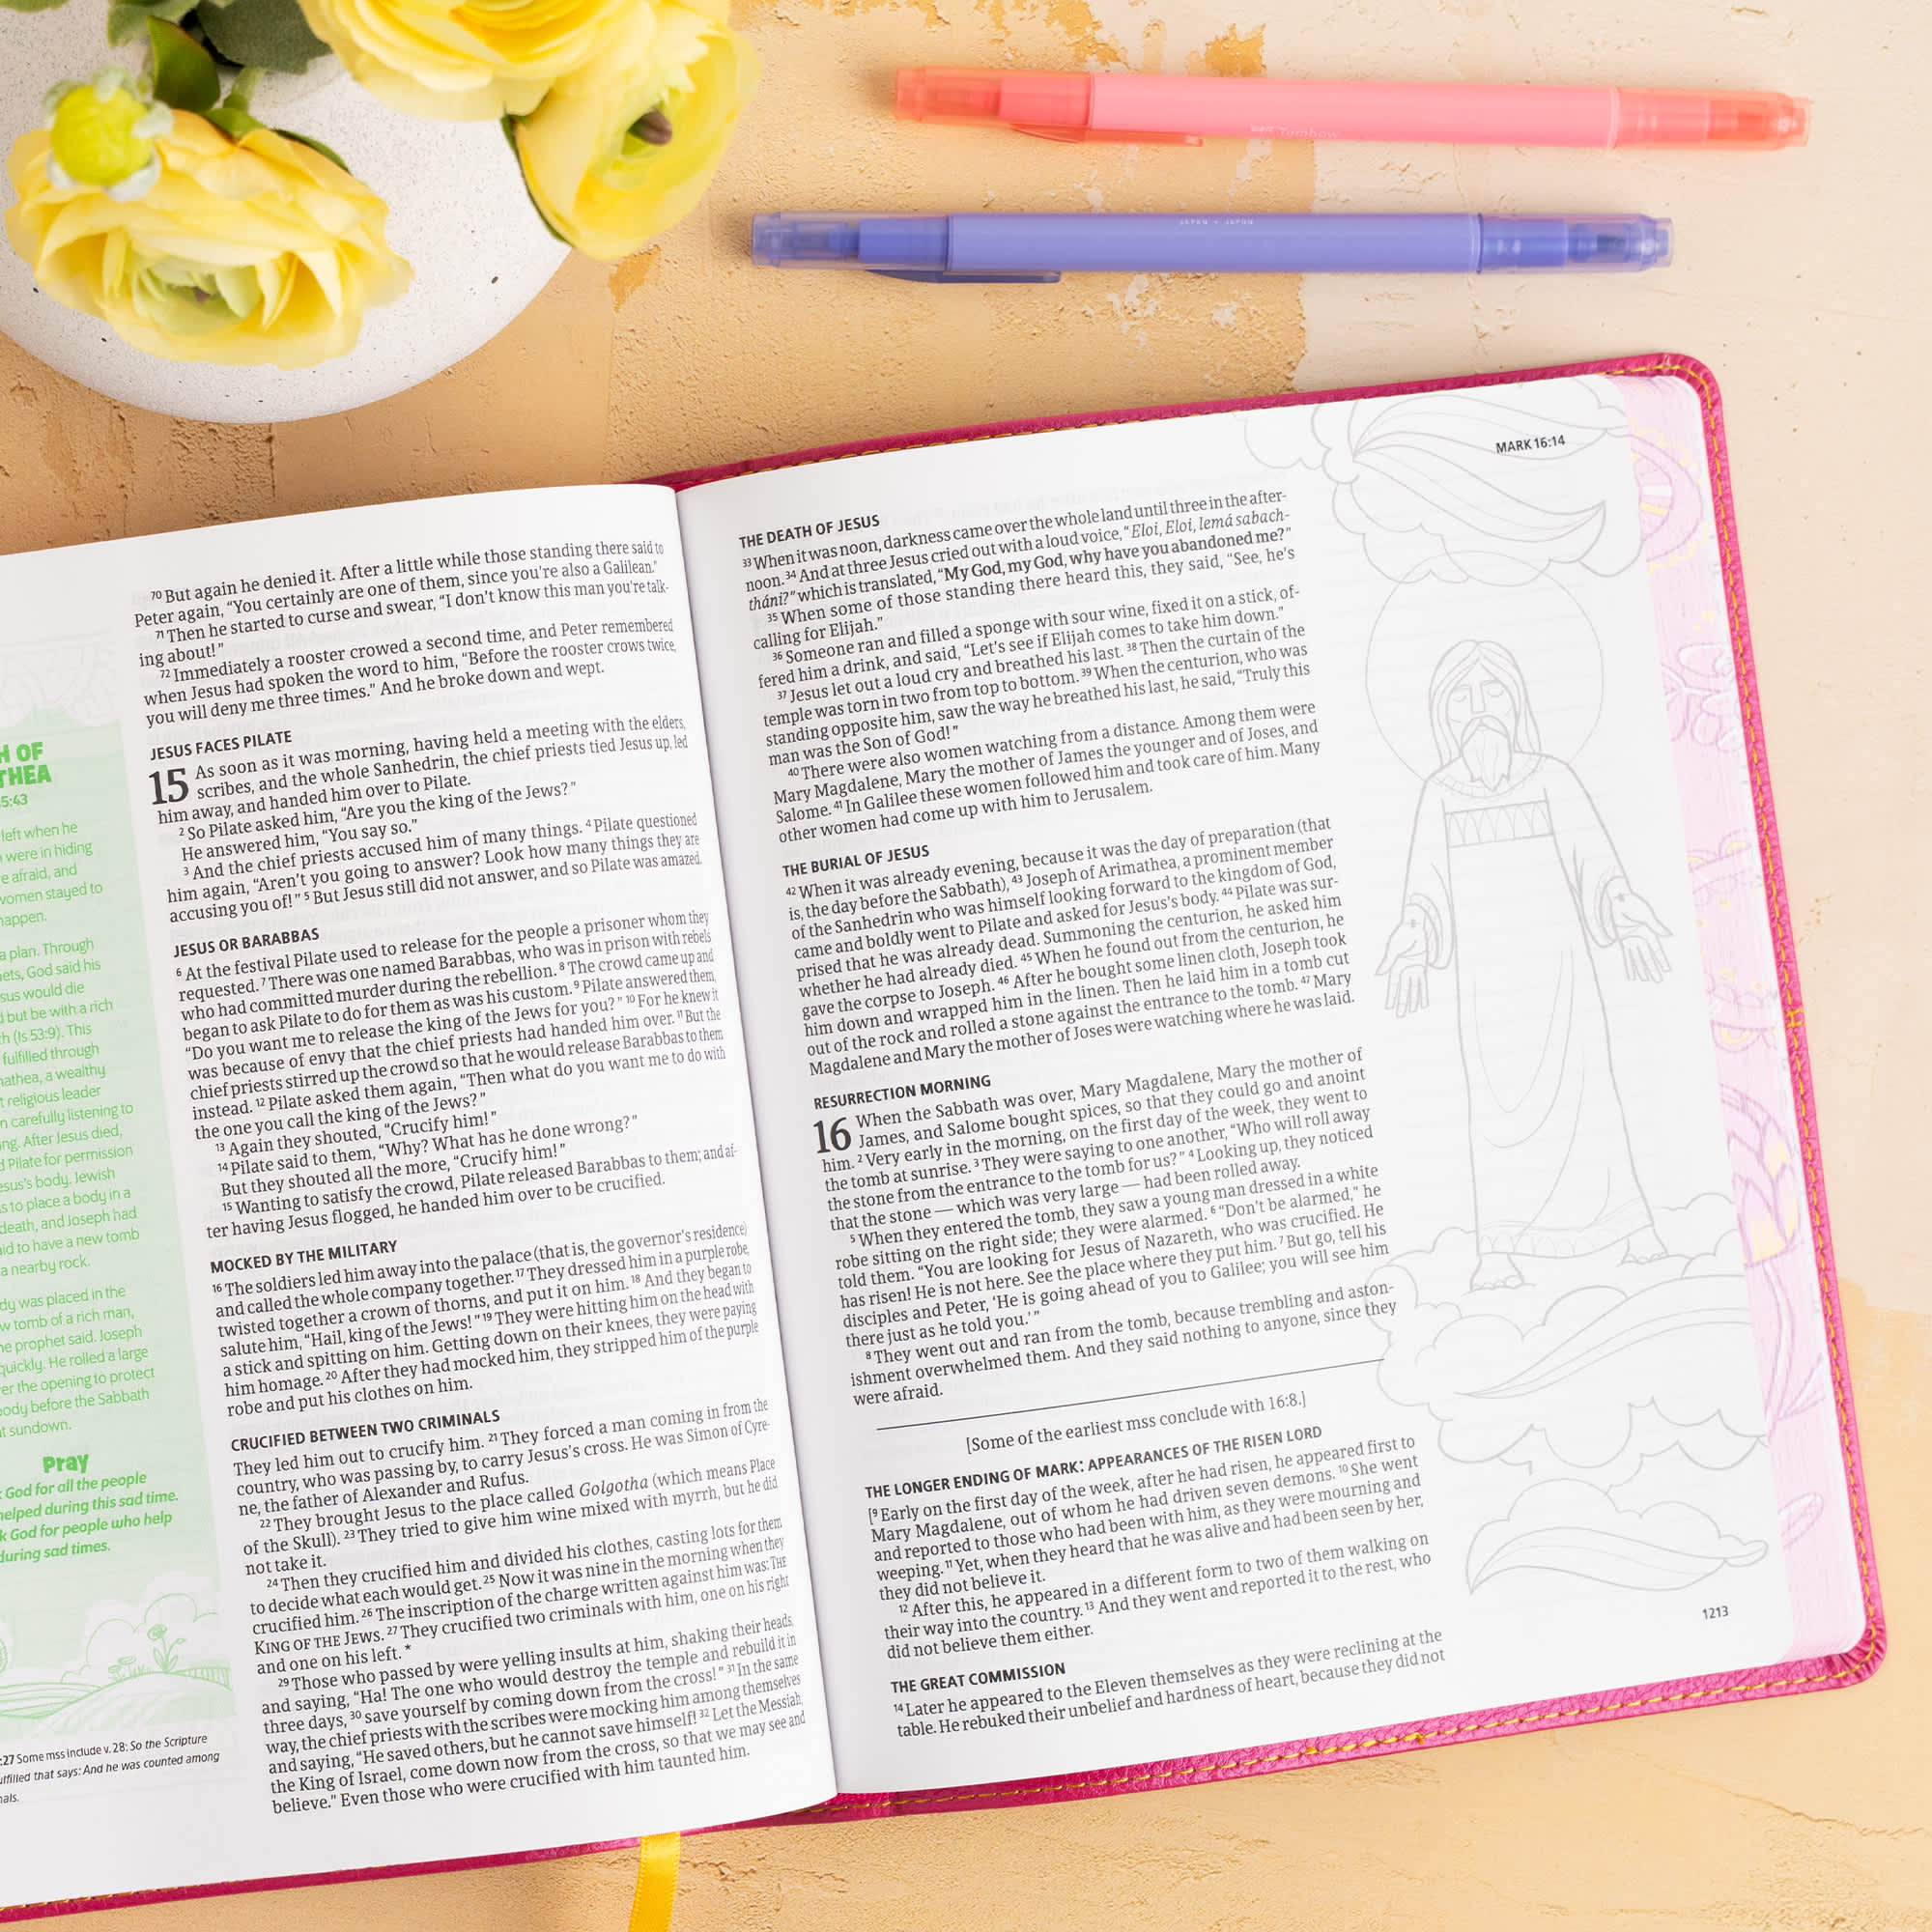 Tombow
JAPAN • JAPON
H OF
THEA
5:43
left when he
were in hiding
e afraid, and
women stayed to
happen.
a plan. Through
hets, God said his
sus would die
d but be with a rich
h (Is 53:9). This
fulfilled through
mathea, a wealthy
t religious leader
n carefully listening to
ng. After Jesus died,
d Pilate for permission
esus's body. Jewish
s to place a body in a
death, and Joseph had
id to have a new tomb
a nearby rock.
dy was placed in the
w tomb of a rich man,
he prophet said. Joseph
quickly. He rolled a large
er the opening to protect
ody before the Sabbath
t sundown.
Pray
k God for all the people
helped during this sad time.
k God for people who help
during sad times.
:27 Some mss include v. 28: So the Scripture
ulfilled that says: And he was counted among
nals.
70 But again he denied it. After a little while those standing there said to
Peter again, “You certainly are one of them, since you're also a Galilean.”
71 Then he started to curse and swear, “I don't know this man you're talk-
ing about!”
72 Immediately a rooster crowed a second time, and Peter remembered
when Jesus had spoken the word to him, “Before the rooster crows twice,
you will deny me three times.” And he broke down and wept.
JESUS FACES PILATE
15 As soon as it was morning, having held a meeting with the elders,
scribes, and the whole Sanhedrin, the chief priests tied Jesus up, led
him away, and handed him over to Pilate.
2 So Pilate asked him, “Are you the king of the Jews?”
He answered him, “You say so.”
3 And the chief priests accused him of many things. 4 Pilate questioned
him again, “Aren't you going to answer? Look how many things they are
accusing you of!” 5 But Jesus still did not answer, and so Pilate was amazed.
JESUS OR BARABBAS
6 At the festival Pilate used to release for the people a prisoner whom they
requested. 7 There was one named Barabbas, who was in prison with rebels
who had committed murder during the rebellion. 8 The crowd came up and
began to ask Pilate to do for them as was his custom. 9 Pilate answered them,
“Do you want me to release the king of the Jews for you?” 10 For he knew it
was because of envy that the chief priests had handed him over. 11 But the
chief priests stirred up the crowd so that he would release Barabbas to them
instead. 12 Pilate asked them again, “Then what do you want me to do with
the one you call the king of the Jews?”
13 Again they shouted, “Crucify him!”
14 Pilate said to them, “Why? What has he done wrong?”
But they shouted all the more, “Crucify him!”
15 Wanting to satisfy the crowd, Pilate released Barabbas to them; and af-
ter having Jesus flogged, he handed him over to be crucified.
MOCKED BY THE MILITARY
16 The soldiers led him away into the palace (that is, the governor's residence)
and called the whole company together. 17 They dressed him in a purple robe,
twisted together a crown of thorns, and put it on him. 18 And they began to
salute him, “Hail, king of the Jews!” 19 They were hitting him on the head with
a stick and spitting on him. Getting down on their knees, they were paying
him homage. 20 After they had mocked him, they stripped him of the purple
robe and put his clothes on him.
CRUCIFIED BETWEEN TWO CRIMINALS
They led him out to crucify him. 21 They forced a man coming in from the
country, who was passing by, to carry Jesus's cross. He was Simon of Cyre-
ne, the father of Alexander and Rufus.
22 They brought Jesus to the place called Golgotha (which means Place
of the Skull). 23 They tried to give him wine mixed with myrrh, but he did
not take it.
24 Then they crucified him and divided his clothes, casting lots for them
to decide what each would get. 25 Now it was nine in the morning when they
crucified him. 26 The inscription of the charge written against him was: THE
KING OF THE JEWS. 27 They crucified two criminals with him, one on his right
and one on his left.*
29 Those who passed by were yelling insults at him, shaking their heads,
and saying, “Ha! The one who would destroy the temple and rebuild it in
three days, 30 save yourself by coming down from the cross!” 31 In the same
way, the chief priests with the scribes were mocking him among themselves
and saying, “He saved others, but he cannot save himself! 32 Let the Messiah,
the King of Israel, come down now from the cross, so that we may see and
believe.” Even those who were crucified with him taunted him.
MARK 16:14
THE DEATH OF JESUS
33 When it was noon, darkness came over the whole land until three in the after-
noon. 34 And at three Jesus cried out with a loud voice, “Eloi, Eloi, lemá sabach-
tháni?” which is translated, “My God, my God, why have you abandoned me?”
35 When some of those standing there heard this, they said, “See, he's
calling for Elijah.”
36 Someone ran and filled a sponge with sour wine, fixed it on a stick, of-
fered him a drink, and said, “Let's see if Elijah comes to take him down.”
37 Jesus let out a loud cry and breathed his last. 38 Then the curtain of the
temple was torn in two from top to bottom. 39 When the centurion, who was
standing opposite him, saw the way he breathed his last, he said, “Truly this
man was the Son of God!”
40 There were also women watching from a distance. Among them were
Mary Magdalene, Mary the mother of James the younger and of Joses, and
Salome. 41 In Galilee these women followed him and took care of him. Many
other women had come up with him to Jerusalem.
THE BURIAL OF JESUS
42 When it was already evening, because it was the day of preparation (that
is, the day before the Sabbath), 43 Joseph of Arimathea, a prominent member
of the Sanhedrin who was himself looking forward to the kingdom of God,
came and boldly went to Pilate and asked for Jesus's body. 44 Pilate was sur-
prised that he was already dead. Summoning the centurion, he asked him
whether he had already died. 45 When he found out from the centurion, he
gave the corpse to Joseph. 46 After he bought some linen cloth, Joseph took
him down and wrapped him in the linen. Then he laid him in a tomb cut
out of the rock and rolled a stone against the entrance to the tomb. 47 Mary
Magdalene and Mary the mother of Joses were watching where he was laid.
RESURRECTION MORNING
16 When the Sabbath was over, Mary Magdalene, Mary the mother of
James, and Salome bought spices, so that they could go and anoint
him. 2 Very early in the morning, on the first day of the week, they went to
the tomb at sunrise. 3 They were saying to one another, “Who will roll away
the stone from the entrance to the tomb for us?” 4 Looking up, they noticed
that the stone — which was very large — had been rolled away.
5 When they entered the tomb, they saw a young man dressed in a white
robe sitting on the right side; they were alarmed. 6 “Don't be alarmed,” he
told them. “You are looking for Jesus of Nazareth, who was crucified. He
has risen! He is not here. See the place where they put him. 7 But go, tell his
disciples and Peter, ‘He is going ahead of you to Galilee; you will see him
there just as he told you.’”
8 They went out and ran from the tomb, because trembling and aston-
ishment overwhelmed them. And they said nothing to anyone, since they
were afraid.
[Some of the earliest mss conclude with 16:8.]
THE LONGER ENDING OF MARK: APPEARANCES OF THE RISEN LORD
[9 Early on the first day of the week, after he had risen, he appeared first to
Mary Magdalene, out of whom he had driven seven demons. 10 She went
and reported to those who had been with him, as they were mourning and
weeping. 11 Yet, when they heard that he was alive and had been seen by her,
they did not believe it.
12 After this, he appeared in a different form to two of them walking on
their way into the country. 13 And they went and reported it to the rest, who
did not believe them either.
THE GREAT COMMISSION
14 Later he appeared to the Eleven themselves as they were reclining at the
table. He rebuked their unbelief and hardness of heart, because they did not
1213